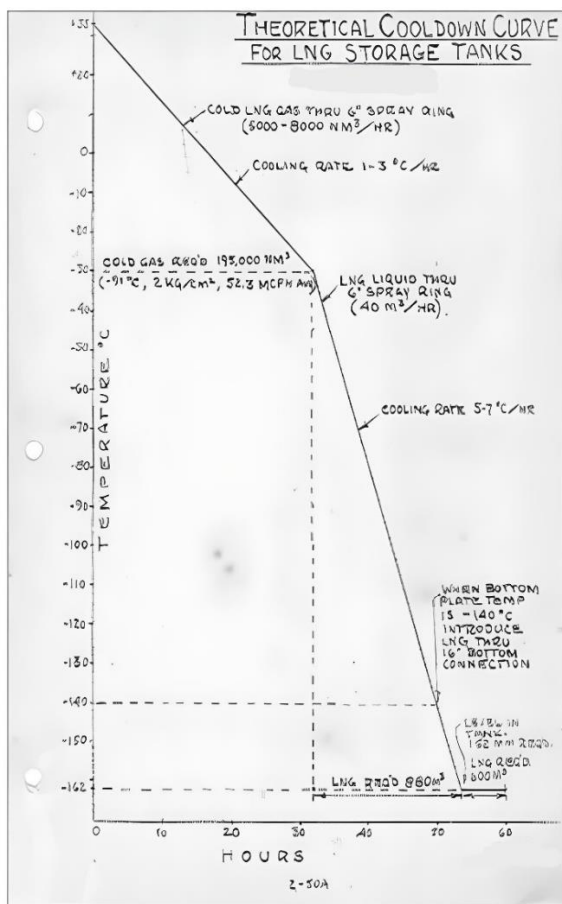 THEORETICAL COOLDOWN CURVE
FOR LNG STORAGE TANKS
+35
+20
0
-10
-20
-30
-40
-50
-60
-70
-80
-90
-100
-110
-120
-130
-140
-150
-162
TEMPERATURE °C
COLD LNG GAS THRU 6" SPRAY RING
(5000-8000 NM³/HR)
COOLING RATE 1-3 °C/HR
COLD GAS REQ'D 195,000 NM³
(-91°C, 2 KG/CM², 52.3 MCFH AVG)
LNG LIQUID THRU
6" SPRAY RING
(40 M³/HR).
COOLING RATE 5-7 °C/HR
WHEN BOTTOM
PLATE TEMP
IS -140°C
INTRODUCE
LNG THRU
16" BOTTOM
CONNECTION
LEVEL IN
TANK.
152 MM REQD.
LNG REQ'D 880M³
LNG REQ'D
600M³
0 10 20 30 40 50 60
HOURS
2-50A